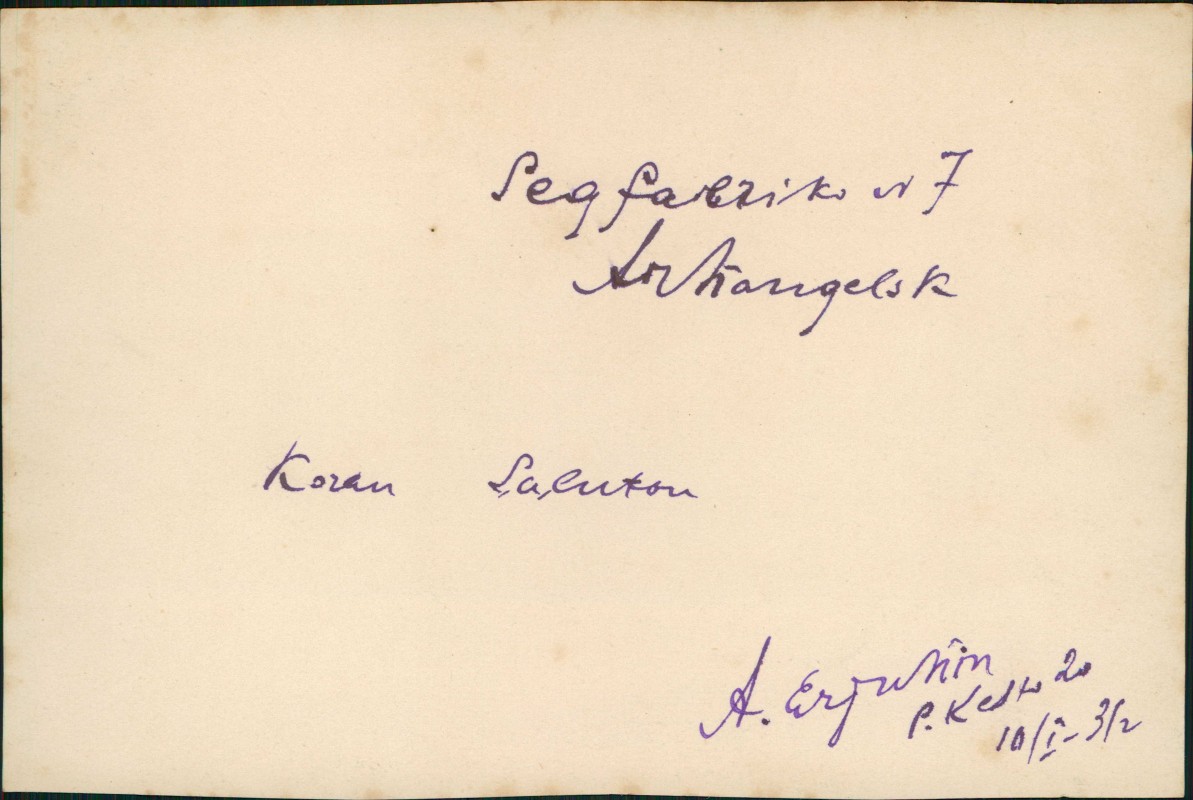 Segfabriko N 7
Arĥangelsk
Koran Saluton
A. Erjuĥin
P. Kesto 20
10/I-3/2